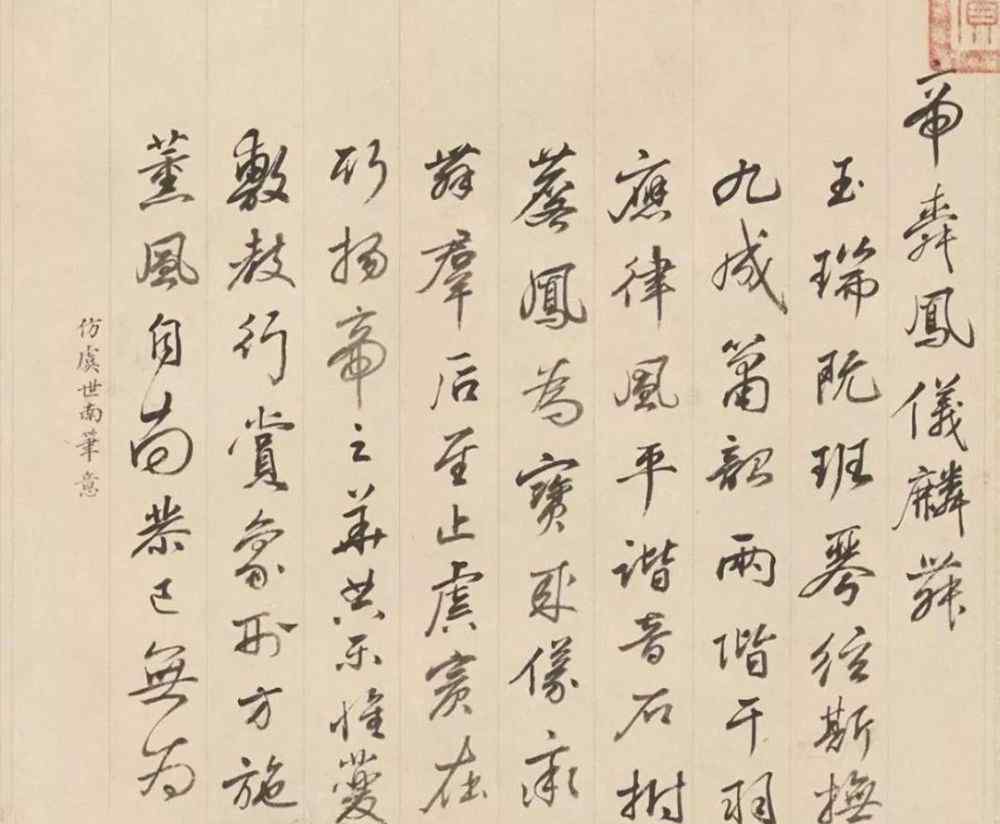 帝舜鳳儀麟舞
玉瑞既班琴絃斯撫
九成簫韶兩階干羽
應律風平諧音石拊
鳳為儀
舞羣后至止虞賓在
所揚帝之華典樂惟夔
敷教行賞象刑方施
薰風自南恭己無為
仿虞世南筆意